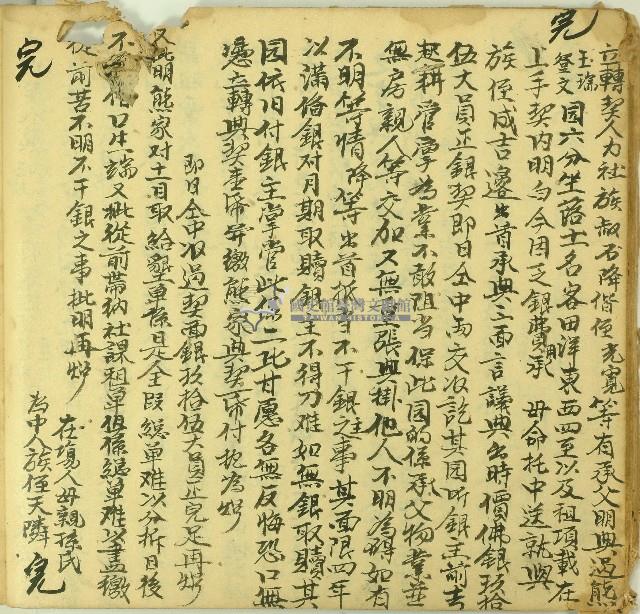 完
立轉契人力社族叔石降偕侄光寬等有承父明典過熊
玉瑞
登文園六分坐落土名客田洋東西四至以及租項載在
上手契內明白今因乏銀費用承母命托中送就與
族侄成吉邊出首承典三面言議典出時價佛銀玖拾
伍大員正銀契即日仝中兩交收訖其園听銀主前去
起耕管掌為業不敢阻当保此園的係承父物業並
無房親人等交加又無重張典掛他人不明為碍如有
不明等情降等出首抵当不干銀主之事其面限四年
以滿俻銀对月期取贖銀主不得刁难如無銀取贖其
园依旧付銀主掌管此係二比甘愿各無反悔恐口無
憑立轉典契壹帋並繳熊家典契壹帋付执為炤
即日仝中收過契面銀玖拾伍大員正完足再炤
又批明熊家对十一月取給墾單係是仝段總單难以分拆日後
不 口生端又批從前帶納社課租單伍係總單难以盡繳
從前若不明不干銀之事批明再炤
在塲人母親孫氏
為中人族侄天隣
完
完
國史館臺灣文獻館
TAIWAN HISTORICA